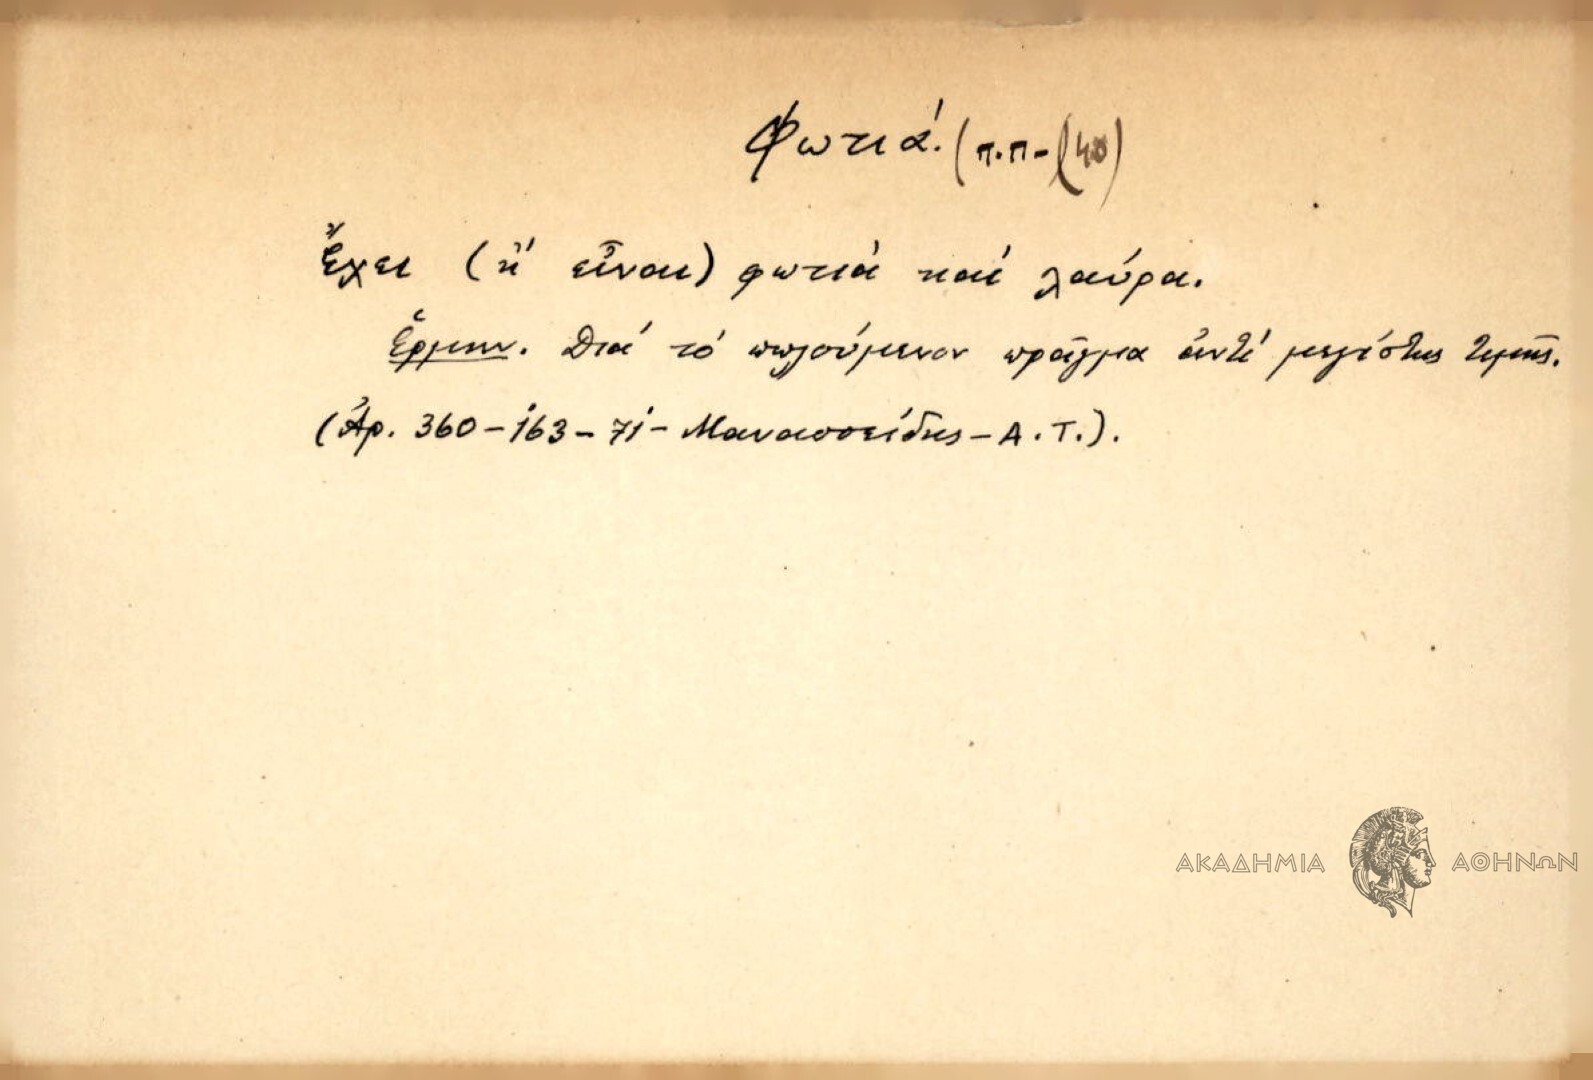 Φωτιά. (π.π-(40)
Ἔχει (ἤ εἶναι) φωτιά καί λαύρα.
Ἑρμην. Διά τό πωλούμενον πρᾶγμα ἀντί μεγίστης τιμῆς.
(Ἀρ. 360-163-71-Μανασσείδης-Α.Τ.).
ΑΚΑΔΗΜΙΑ ΑΘΗΝΩΝ